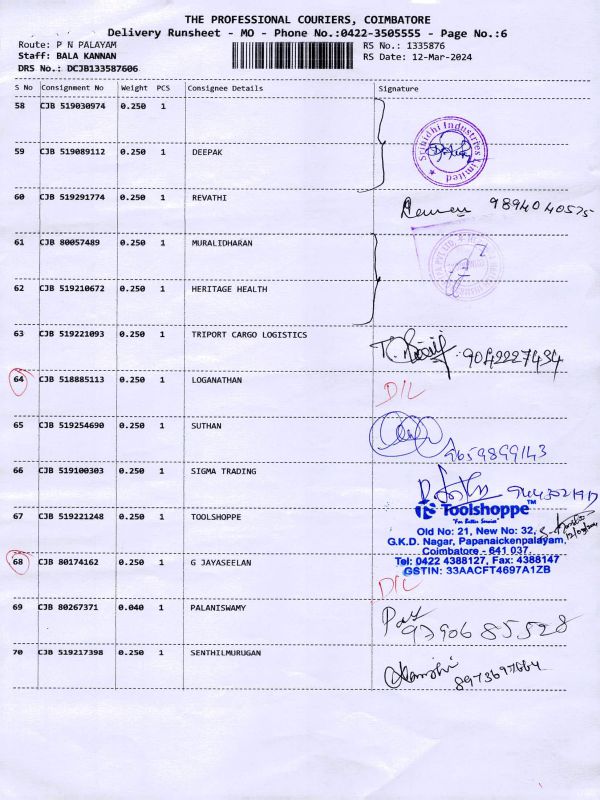 THE PROFESSIONAL COURIERS, COIMBATORE
Delivery Runsheet - MO - Phone No.:0422-3505555 - Page No.:6
Route: P N PALAYAM RS No.: 1335876
Staff: BALA KANNAN RS Date: 12-Mar-2024
DRS No.: DCJB133587606
S No Consignment No Weight PCS Consignee Details Signature
58 CJB 519030974 0.250 1
Srinidhi Industries Limited
59 CJB 519089112 0.250 1 DEEPAK
60 CJB 519291774 0.250 1 REVATHI
9894040575
61 CJB 80057489 0.250 1 MURALIDHARAN
62 CJB 519210672 0.250 1 HERITAGE HEALTH
63 CJB 519221093 0.250 1 TRIPORT CARGO LOGISTICS
9042227434
64 CJB 518885113 0.250 1 LOGANATHAN
D/L
65 CJB 519254690 0.250 1 SUTHAN
9659899143
66 CJB 519100303 0.250 1 SIGMA TRADING
67 CJB 519221248 0.250 1 TOOLSHOPPE
Toolshoppe™
"For Better Service"
Old No: 21, New No: 32,
G.K.D. Nagar, Papanaickenpalayam,
Coimbatore - 641 037.
Tel: 0422 4388127, Fax: 4388147
GSTIN: 33AACFT4697A1ZB
68 CJB 80174162 0.250 1 G JAYASEELAN
D/L
69 CJB 80267371 0.040 1 PALANISWAMY
9790685528
70 CJB 519217398 0.250 1 SENTHILMURUGAN
8973697664